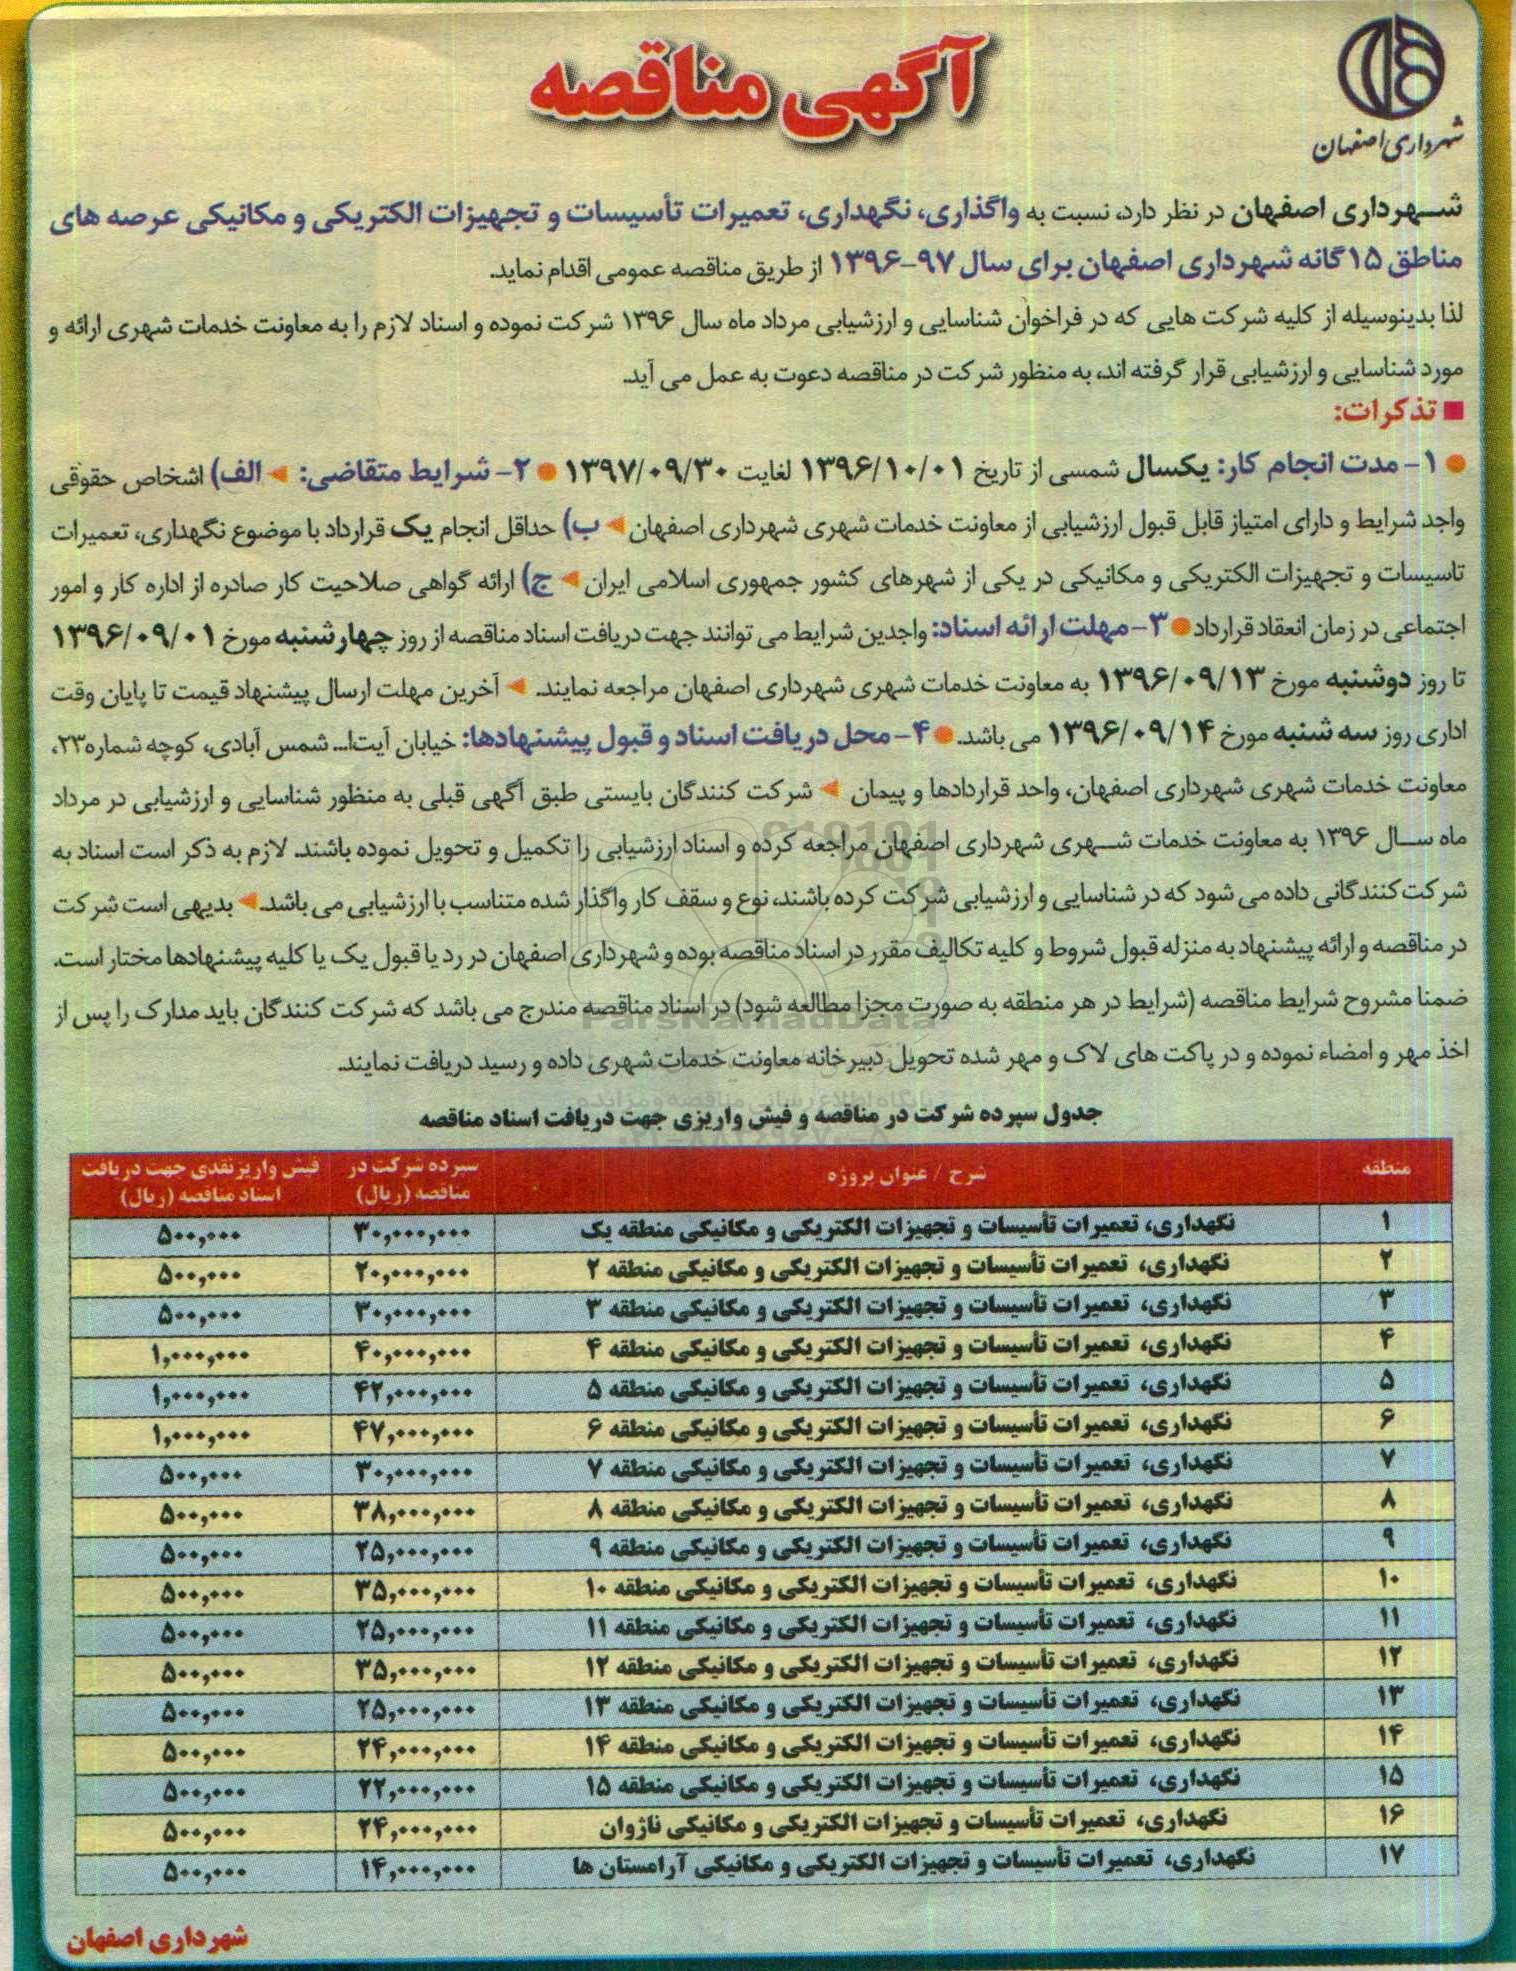 شهرداری اصفهان
آگهی مناقصه
شهرداری اصفهان در نظر دارد، نسبت به واگذاری، نگهداری، تعمیرات تأسیسات و تجهیزات الکتریکی و مکانیکی عرصه های
مناطق ۱۵ گانه شهرداری اصفهان برای سال ۹۷-۱۳۹۶ از طریق مناقصه عمومی اقدام نماید.
لذا بدینوسیله از کلیه شرکت هایی که در فراخوان شناسایی و ارزشیابی مرداد ماه سال ۱۳۹۶ شرکت نموده و اسناد لازم را به معاونت خدمات شهری ارائه و
مورد شناسایی و ارزشیابی قرار گرفته اند، به منظور شرکت در مناقصه دعوت به عمل می آید.
■ تذکرات:
● ۱- مدت انجام کار: یکسال شمسی از تاریخ ۱۳۹۶/۱۰/۰۱ لغایت ۱۳۹۷/۰۹/۳۰ ● ۲- شرایط متقاضی: ◄ الف) اشخاص حقوقی
واجد شرایط و دارای امتیاز قابل قبول ارزشیابی از معاونت خدمات شهری شهرداری اصفهان ◄ ب) حداقل انجام یک قرارداد با موضوع نگهداری، تعمیرات
تاسیسات و تجهیزات الکتریکی و مکانیکی در یکی از شهرهای کشور جمهوری اسلامی ایران ◄ ج) ارائه گواهی صلاحیت کار صادره از اداره کار و امور
اجتماعی در زمان انعقاد قرارداد ● ۳- مهلت ارائه اسناد: واجدین شرایط می توانند جهت دریافت اسناد مناقصه از روز چهارشنبه مورخ ۱۳۹۶/۰۹/۰۱
تا روز دوشنبه مورخ ۱۳۹۶/۰۹/۱۳ به معاونت خدمات شهری شهرداری اصفهان مراجعه نمایند. ◄ آخرین مهلت ارسال پیشنهاد قیمت تا پایان وقت
اداری روز سه شنبه مورخ ۱۳۹۶/۰۹/۱۴ می باشد. ● ۴- محل دریافت اسناد و قبول پیشنهادها: خیابان آیت‌ا... شمس آبادی، کوچه شماره۲۳،
معاونت خدمات شهری شهرداری اصفهان، واحد قراردادها و پیمان ◄ شرکت کنندگان بایستی طبق آگهی قبلی به منظور شناسایی و ارزشیابی در مرداد
ماه سال ۱۳۹۶ به معاونت خدمات شهری شهرداری اصفهان مراجعه کرده و اسناد ارزشیابی را تکمیل و تحویل نموده باشند. لازم به ذکر است اسناد به
شرکت کنندگانی داده می شود که در شناسایی و ارزشیابی شرکت کرده باشند، نوع و سقف کار واگذار شده متناسب با ارزشیابی می باشد. ◄ بدیهی است شرکت
در مناقصه و ارائه پیشنهاد به منزله قبول شروط و کلیه تکالیف مقرر در اسناد مناقصه بوده و شهرداری اصفهان در رد یا قبول یک یا کلیه پیشنهادها مختار است.
ضمنا مشروح شرایط مناقصه (شرایط در هر منطقه به صورت مجزا مطالعه شود) در اسناد مناقصه مندرج می باشد که شرکت کنندگان باید مدارک را پس از
ParsNamadData
اخذ مهر و امضاء نموده و در پاکت های لاک و مهر شده تحویل دبیرخانه معاونت خدمات شهری داده و رسید دریافت نمایند.
جدول سپرده شرکت در مناقصه و فیش واریزی جهت دریافت اسناد مناقصه
منطقه | شرح / عنوان پروژه | سپرده شرکت در مناقصه (ریال) | فیش واریز نقدی جهت دریافت اسناد مناقصه (ریال)
۱ نگهداری، تعمیرات تأسیسات و تجهیزات الکتریکی و مکانیکی منطقه یک ۳۰,۰۰۰,۰۰۰ ۵۰۰,۰۰۰
۲ نگهداری، تعمیرات تأسیسات و تجهیزات الکتریکی و مکانیکی منطقه ۲ ۲۰,۰۰۰,۰۰۰ ۵۰۰,۰۰۰
۳ نگهداری، تعمیرات تأسیسات و تجهیزات الکتریکی و مکانیکی منطقه ۳ ۳۰,۰۰۰,۰۰۰ ۵۰۰,۰۰۰
۴ نگهداری، تعمیرات تأسیسات و تجهیزات الکتریکی و مکانیکی منطقه ۴ ۴۰,۰۰۰,۰۰۰ ۱,۰۰۰,۰۰۰
۵ نگهداری، تعمیرات تأسیسات و تجهیزات الکتریکی و مکانیکی منطقه ۵ ۴۲,۰۰۰,۰۰۰ ۱,۰۰۰,۰۰۰
۶ نگهداری، تعمیرات تأسیسات و تجهیزات الکتریکی و مکانیکی منطقه ۶ ۴۷,۰۰۰,۰۰۰ ۱,۰۰۰,۰۰۰
۷ نگهداری، تعمیرات تأسیسات و تجهیزات الکتریکی و مکانیکی منطقه ۷ ۳۰,۰۰۰,۰۰۰ ۵۰۰,۰۰۰
۸ نگهداری، تعمیرات تأسیسات و تجهیزات الکتریکی و مکانیکی منطقه ۸ ۳۸,۰۰۰,۰۰۰ ۵۰۰,۰۰۰
۹ نگهداری، تعمیرات تأسیسات و تجهیزات الکتریکی و مکانیکی منطقه ۹ ۲۵,۰۰۰,۰۰۰ ۵۰۰,۰۰۰
۱۰ نگهداری، تعمیرات تأسیسات و تجهیزات الکتریکی و مکانیکی منطقه ۱۰ ۳۵,۰۰۰,۰۰۰ ۵۰۰,۰۰۰
۱۱ نگهداری، تعمیرات تأسیسات و تجهیزات الکتریکی و مکانیکی منطقه ۱۱ ۲۵,۰۰۰,۰۰۰ ۵۰۰,۰۰۰
۱۲ نگهداری، تعمیرات تأسیسات و تجهیزات الکتریکی و مکانیکی منطقه ۱۲ ۳۵,۰۰۰,۰۰۰ ۵۰۰,۰۰۰
۱۳ نگهداری، تعمیرات تأسیسات و تجهیزات الکتریکی و مکانیکی منطقه ۱۳ ۲۵,۰۰۰,۰۰۰ ۵۰۰,۰۰۰
۱۴ نگهداری، تعمیرات تأسیسات و تجهیزات الکتریکی و مکانیکی منطقه ۱۴ ۲۴,۰۰۰,۰۰۰ ۵۰۰,۰۰۰
۱۵ نگهداری، تعمیرات تأسیسات و تجهیزات الکتریکی و مکانیکی منطقه ۱۵ ۲۲,۰۰۰,۰۰۰ ۵۰۰,۰۰۰
۱۶ نگهداری، تعمیرات تأسیسات و تجهیزات الکتریکی و مکانیکی ناژوان ۲۴,۰۰۰,۰۰۰ ۵۰۰,۰۰۰
۱۷ نگهداری، تعمیرات تأسیسات و تجهیزات الکتریکی و مکانیکی آرامستان ها ۱۴,۰۰۰,۰۰۰ ۵۰۰,۰۰۰
شهرداری اصفهان